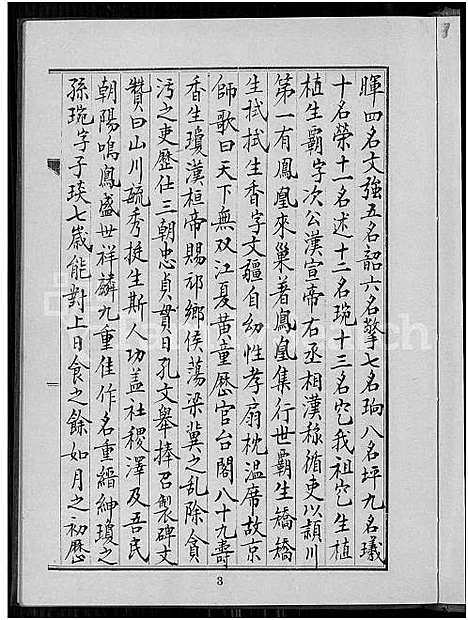 暉四名文強五名韶六名擎七名珦八名坪九名璣
十名榮十一名述十二名琬十三名宅我祖宅生植
植生霸字次公漢宣帝右丞相漢稱循吏以頴川
第一有鳳凰來巢著鳳凰集行世霸生矯矯
生拭拭生香字文疆自幼性孝扇枕溫席故京
師歌曰天下無双江夏黃童歷官台閣八十九壽
香生瓊漢桓帝賜祁鄉侯蕩梁冀之亂除貪
污之吏歷仕三朝忠貞貫日孔文舉捧召製碑文
贊曰山川毓秀挺生斯人功盖社稷澤及吾民
朝陽鳴鳳盛世祥麟九重佳作名重縉紳瓊之
孫琬字子琰七歲能對上日食之餘如月之初歷
3